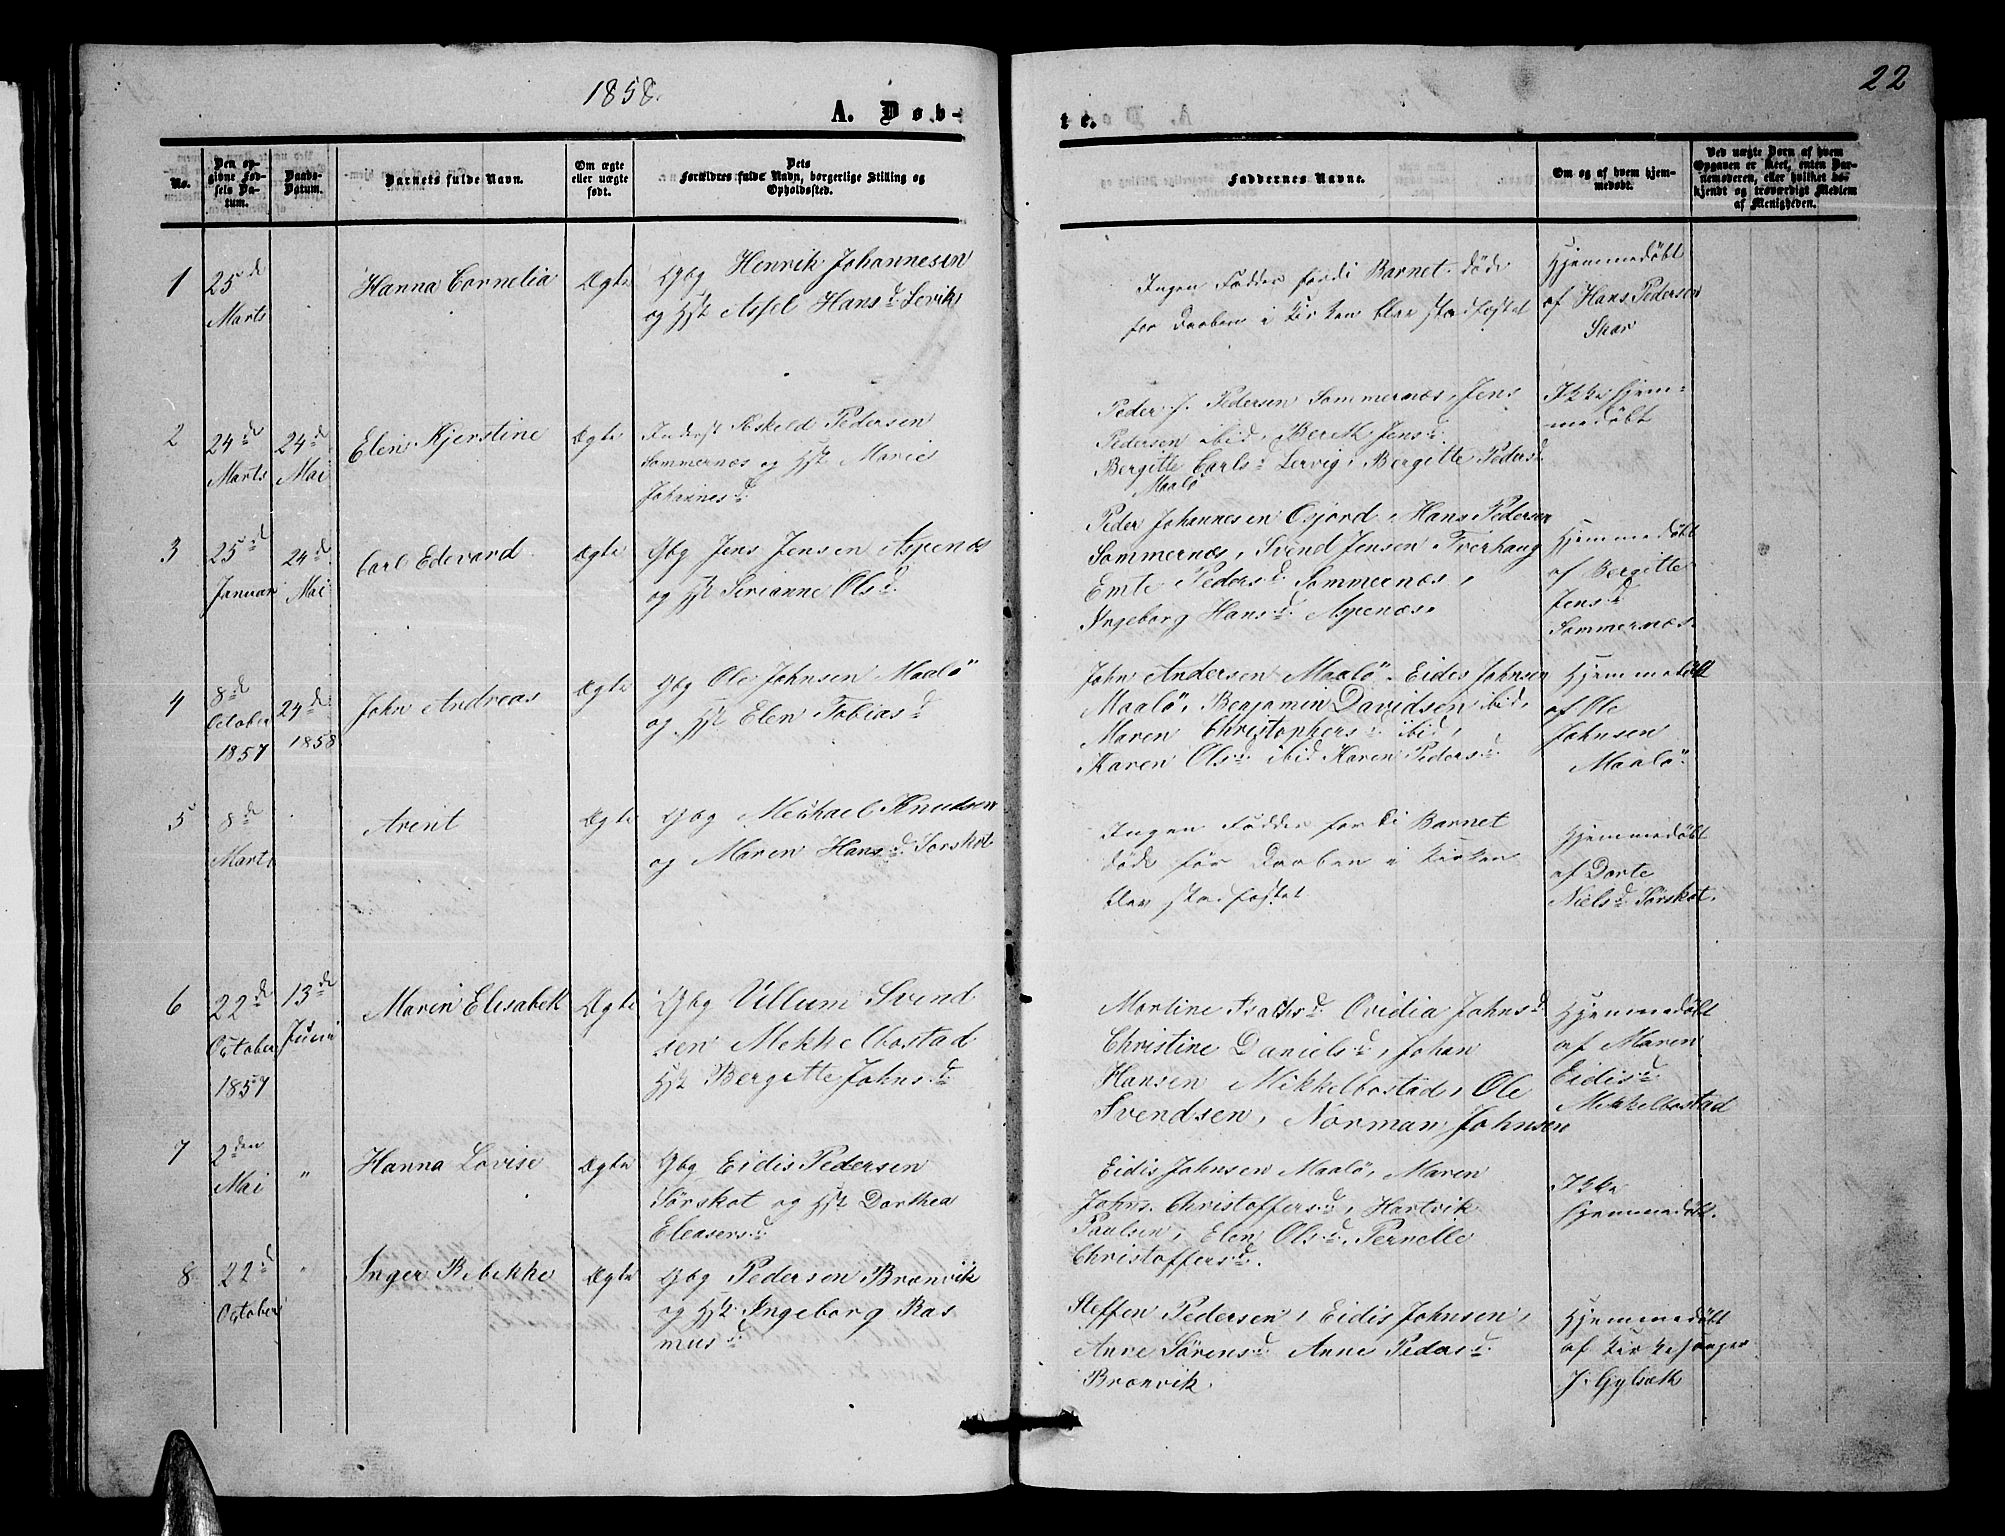 1858.
22
A. Døb-
te.
No.
Den op-
givne Fød-
sels Da-
tum.
Daabs-
Datum.
Barnets fulde Navn.
Om ægte
eller uægte
født.
Dets
Forældres fulde Navn, borgerlige Stilling og
Opholdssted.
Faddernes Navne.
Om og af hvem hjem-
medøbt.
Ved uægte Børn af hvem
Opgaven er skeet, enten Bar-
nemoderen, eller hvilket be-
kjendt og troværdigt Medlem
af Menigheden.
1
25de
Marts
Hanna Cornelia
Ægte
Gbg Henrik Johannesen
og Hst Assel Hansd Lervik
Ingen Fadder fordi Barnet døde
før Daaben i Kirken blev stadfæstet
Hjemmedöbt
af Hans Pedersen
Skar
2
24d
Marts
24d
Mai
Elen Kjerstine
Ægte
Inderst Æskeld Pedersen
Sommernæs og Hst Maries
Johannesd
Peder J. Pedersen Sommernæs, Jens
Pedersen ibid, Berth Jensd.
Bergitte Carlsd Lervig, Bergitte Pedersd
Maalö
Ikke hjem-
medöbt
3
25d
Januari
24d
Mai
Carl Edevard
Ægte
Gbg Jens Jensen Aspenæs
og Hst Serianne Olsd.
Peder Johannesen Osjord, Hans Pedersen
Sommernæs, Svend Jensen Tverhaug
Emte Pedersd. Sommernæs,
Ingeborg Hansd. Aspenæs.
Hjemmedöbt
af Bergitte
Jensd
Sommernæs.
4
8d
October
1857
24d
1858
John Andreas
Ægte
Gbg Ole Johnsen Maalö
og Hst Elen Tobiasd
John Andersen Maalö. Eidis Johnsen
Maalö, Benjamin Davidsen ibid,
Maren Christophersd ibid,
Karen Olsd. ibid Karen Pedersd.
Hjemmedöbt
af Ole
Johnsen
Maalö.
5
8de
Marts
Arent
Ægte
Gbg Michael Knudsen
og Maren Hansd. Sörskot
Ingen Fadder fordi Barnet
døde før Daaben i Kirken
blev stadfæstet
Hjemmedöbt
af Dorte
Nielsd Sörskot.
6
22de
October
1857
13de
Juni
Maren Elisabeth
Ægte
Gbg Villum Svend
sen Mekkelbostad
Hst Bergitte Johnsd
Martine Isaksd. Ovidia Johnsd
Christine Danielsd, Johan
Hansen Mikkelbostad, Ole
Svendsen, Norman Johnsen
Hjemmedöbt
af Maren
Eidisd.
Mikkelbostad
7
2den
Mai
"
Hanna Lovise
Ægte
Gbg Eidis Pedersen
Sörskot og Hst Dorthea
Eleasersd
Eidis Johnsen Maalö, Maren
Johns. Christoffersd, Hartvik
Paulsen, Elen Olsd, Pernelle
Christoffersd.
Ikke
hjemmedöbt.
8
22d
October
"
Inger Rebekke
Ægte
Gbg Pedersen Brænvik
og Hst Ingeborg Ras
musd
Steffen Pedersen, Eidis Johnsen,
Anne Sörensd. Anne Pedersd.
Brænvik.
Hjemmedöbt
af Kirkesanger
J. Gylseth